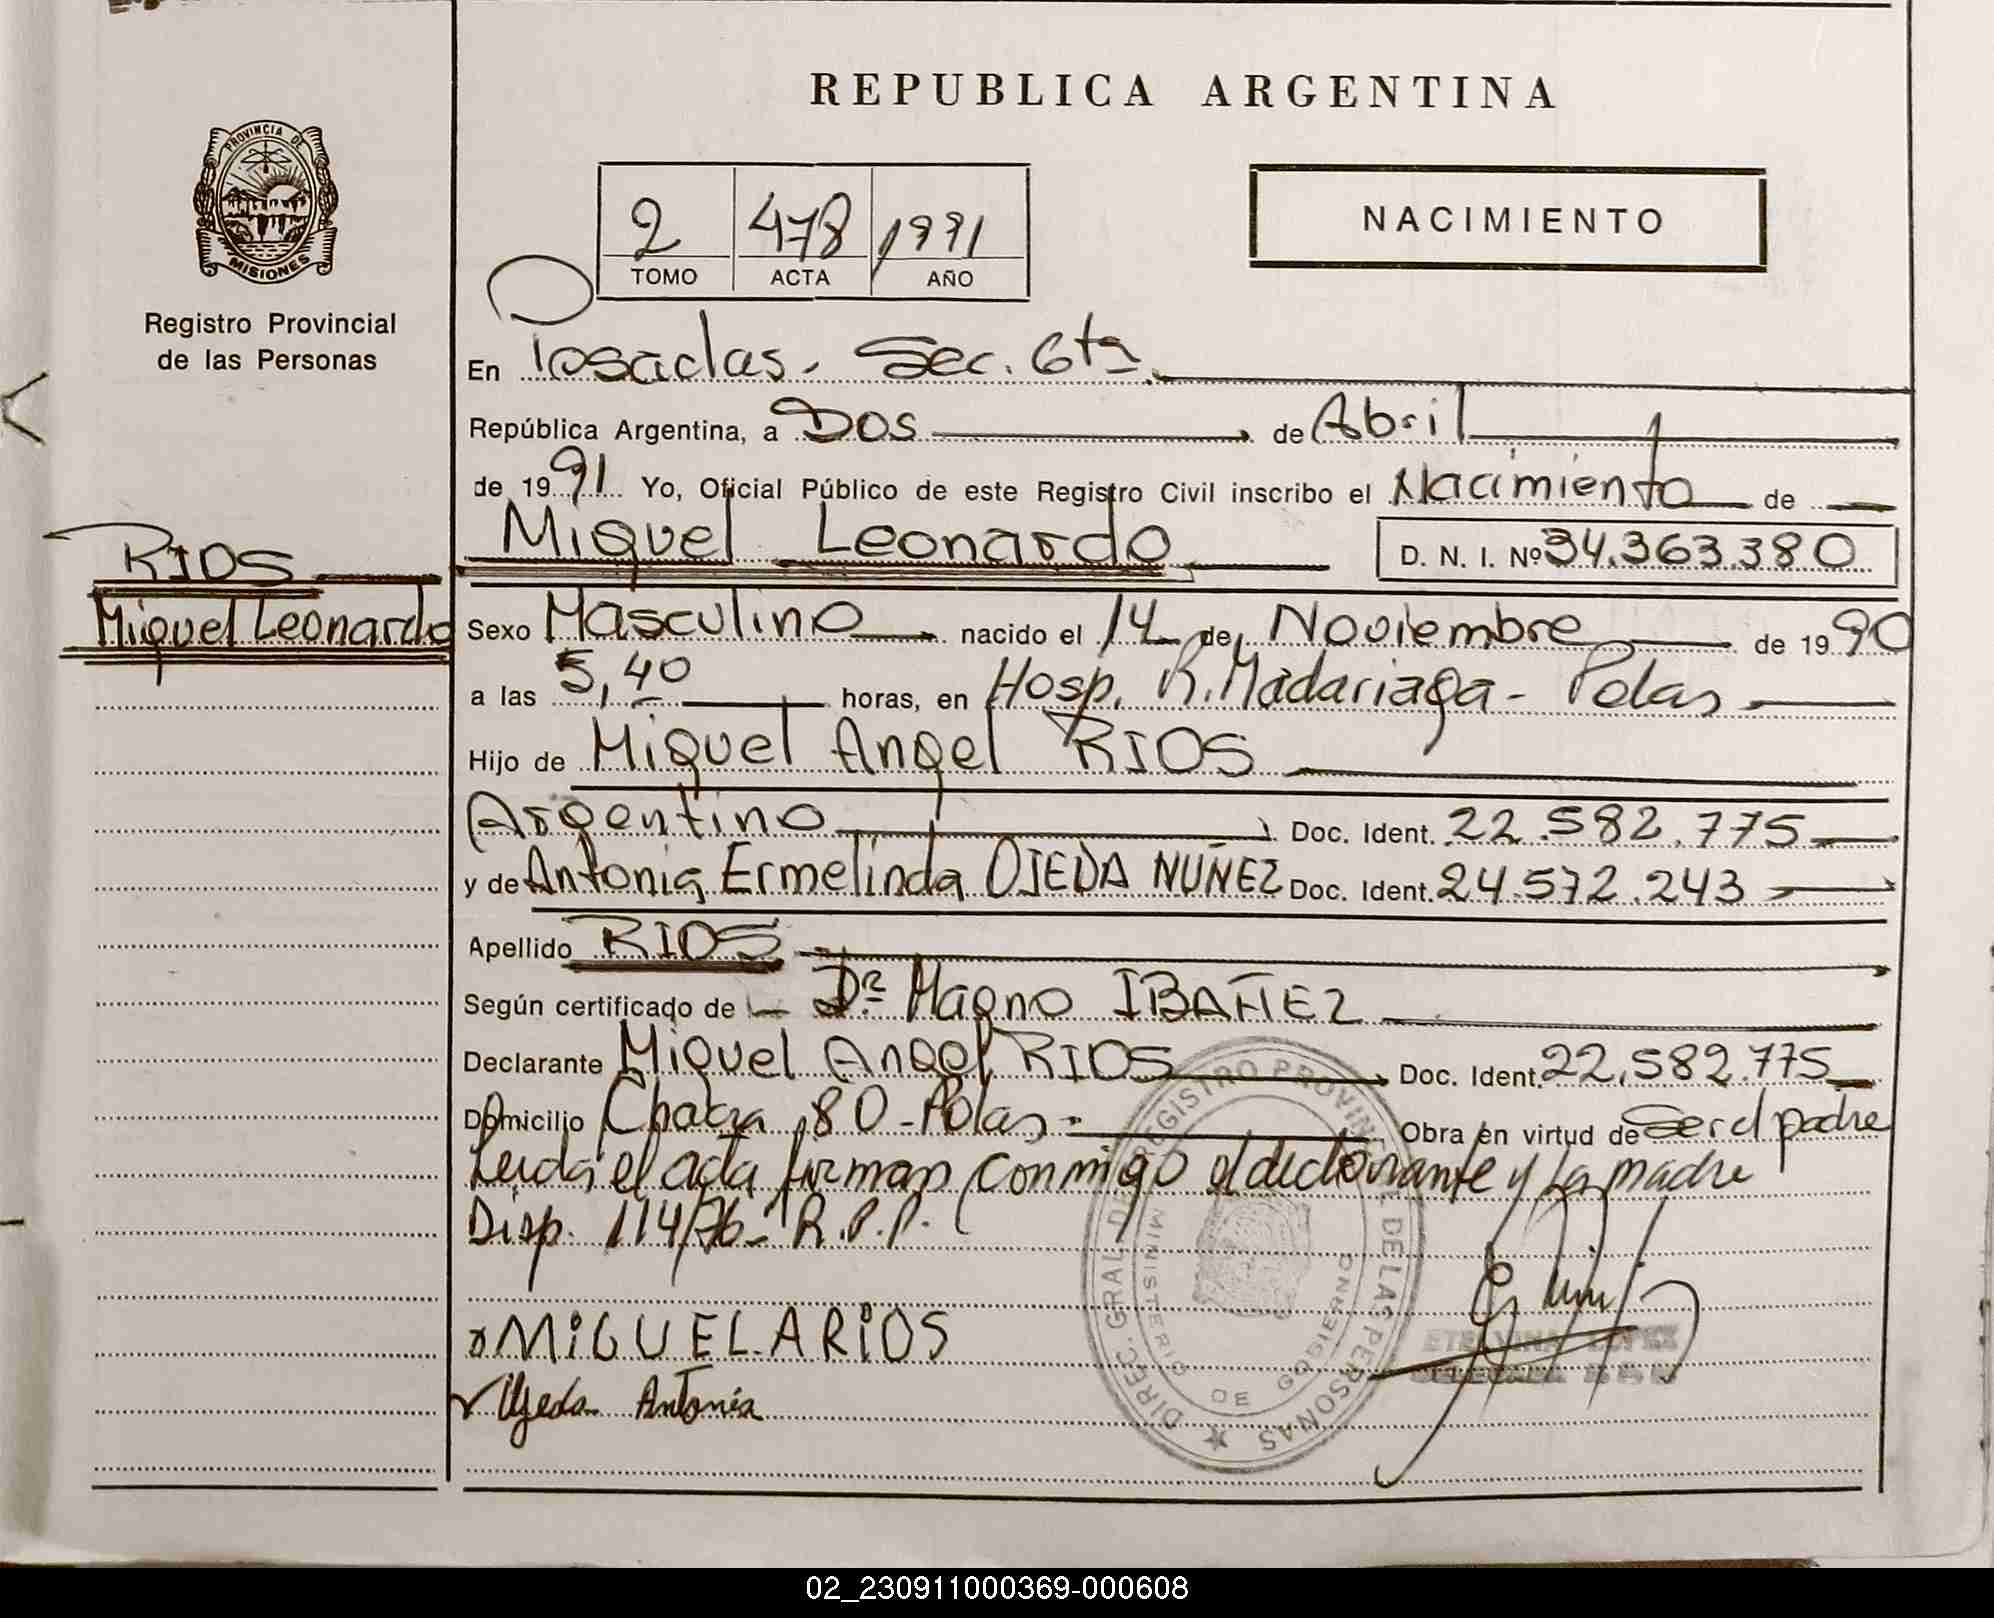 REPUBLICA ARGENTINA
PROVINCIA DE
MISIONES
Registro Provincial
de las Personas
2 478 1991
TOMO ACTA AÑO
NACIMIENTO
En Posadas. Sec. 6ta
República Argentina, a Dos de Abril
de 1991 Yo, Oficial Público de este Registro Civil inscribo el Nacimiento de
RIOS
Miguel Leonardo
Miguel Leonardo D. N. I. Nº 34.363.380
Sexo Masculino nacido el 14 de Noviembre de 1990
a las 5,40 horas, en Hosp. R. Madariaga - Pdas
Hijo de Miguel Angel RIOS
Argentino Doc. Ident. 22.582.775
y de Antonia Ermelinda OJEDA NUÑEZ Doc. Ident. 24.572.243
Apellido RIOS
Según certificado de Dr. Magno IBAÑEZ
Declarante Miguel Angel RIOS Doc. Ident. 22.582.775
Domicilio Chacra 80 - Pdas - Obra en virtud de ser el padre
Leida el acta firman conmigo el declarante y la madre
Disp. 114/76 - R.P.P.
MiGUEL A RiOS
Ojeda Antonia
DIREC. GRAL. DEL REGISTRO PROVINCIAL DE LAS PERSONAS
MINISTERIO DE GOBIERNO
ETELVINA LOPEZ
DELEGADA
02_230911000369-000608